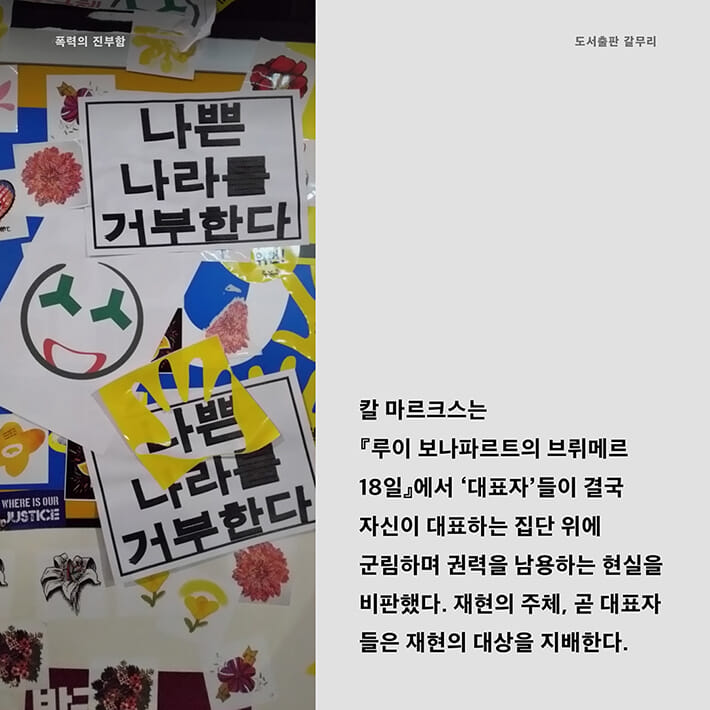 폭력의 진부함
도서출판 갈무리
나쁜
나라를
거부한다
나쁜
나라를
거부한다
WHERE IS OUR
JUSTICE
칼 마르크스는
『루이 보나파르트의 브뤼메르
18일』에서 ‘대표자’들이 결국
자신이 대표하는 집단 위에
군림하며 권력을 남용하는 현실을
비판했다. 재현의 주체, 곧 대표자
들은 재현의 대상을 지배한다.